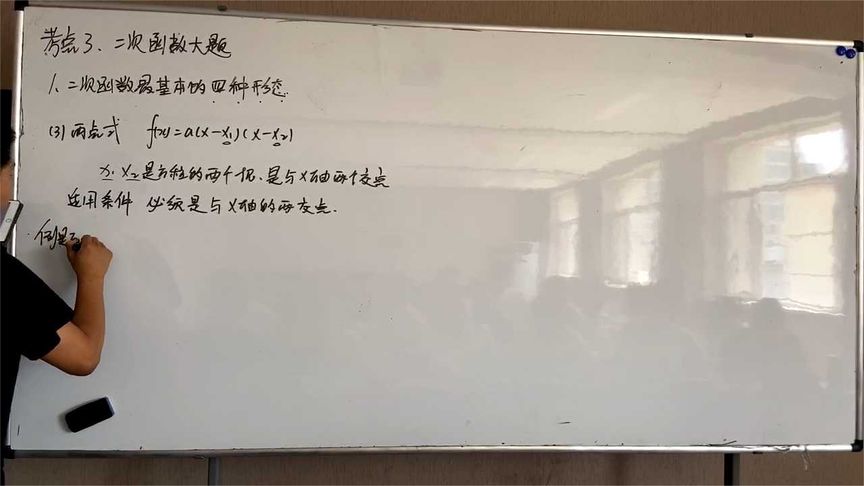 考点3、二次函数大题
1、二次函数最基本的四种形态.
(3) 两点式 f(x)=a(x-x₁)(x-x₂)
x₁ x₂是方程的两个根、是与x轴两个交点
适用条件 必须是与x轴的两交点.
例题3